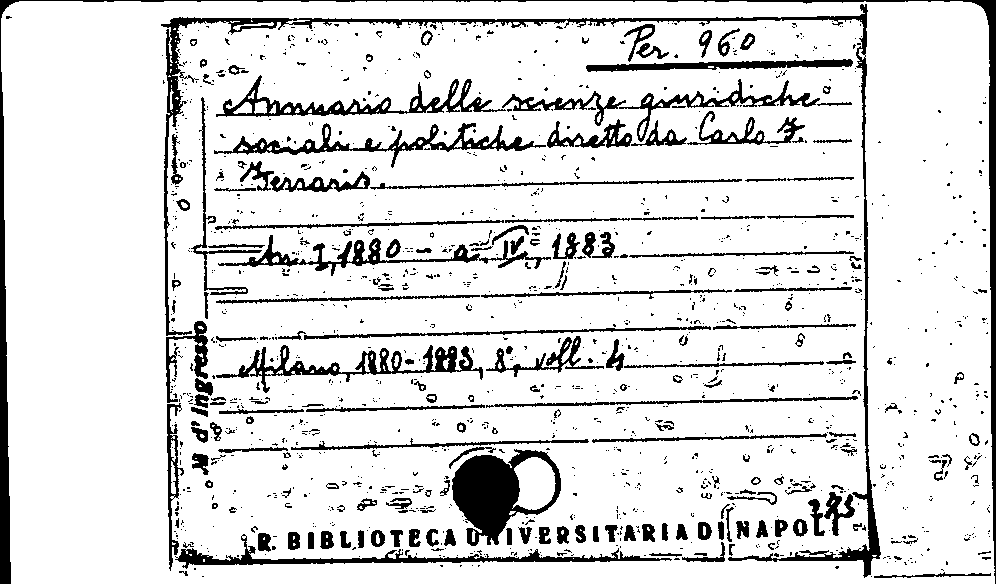 Per. 960
Annuario delle scienze giuridiche
sociali e politiche diretto da Carlo F.
Ferraris.
An. I, 1880 - a. IV, 1883.
Milano, 1880-1883, 8°, voll. 4
N d'ingresso
275
R. BIBLIOTECA UNIVERSITARIA DI NAPOLI